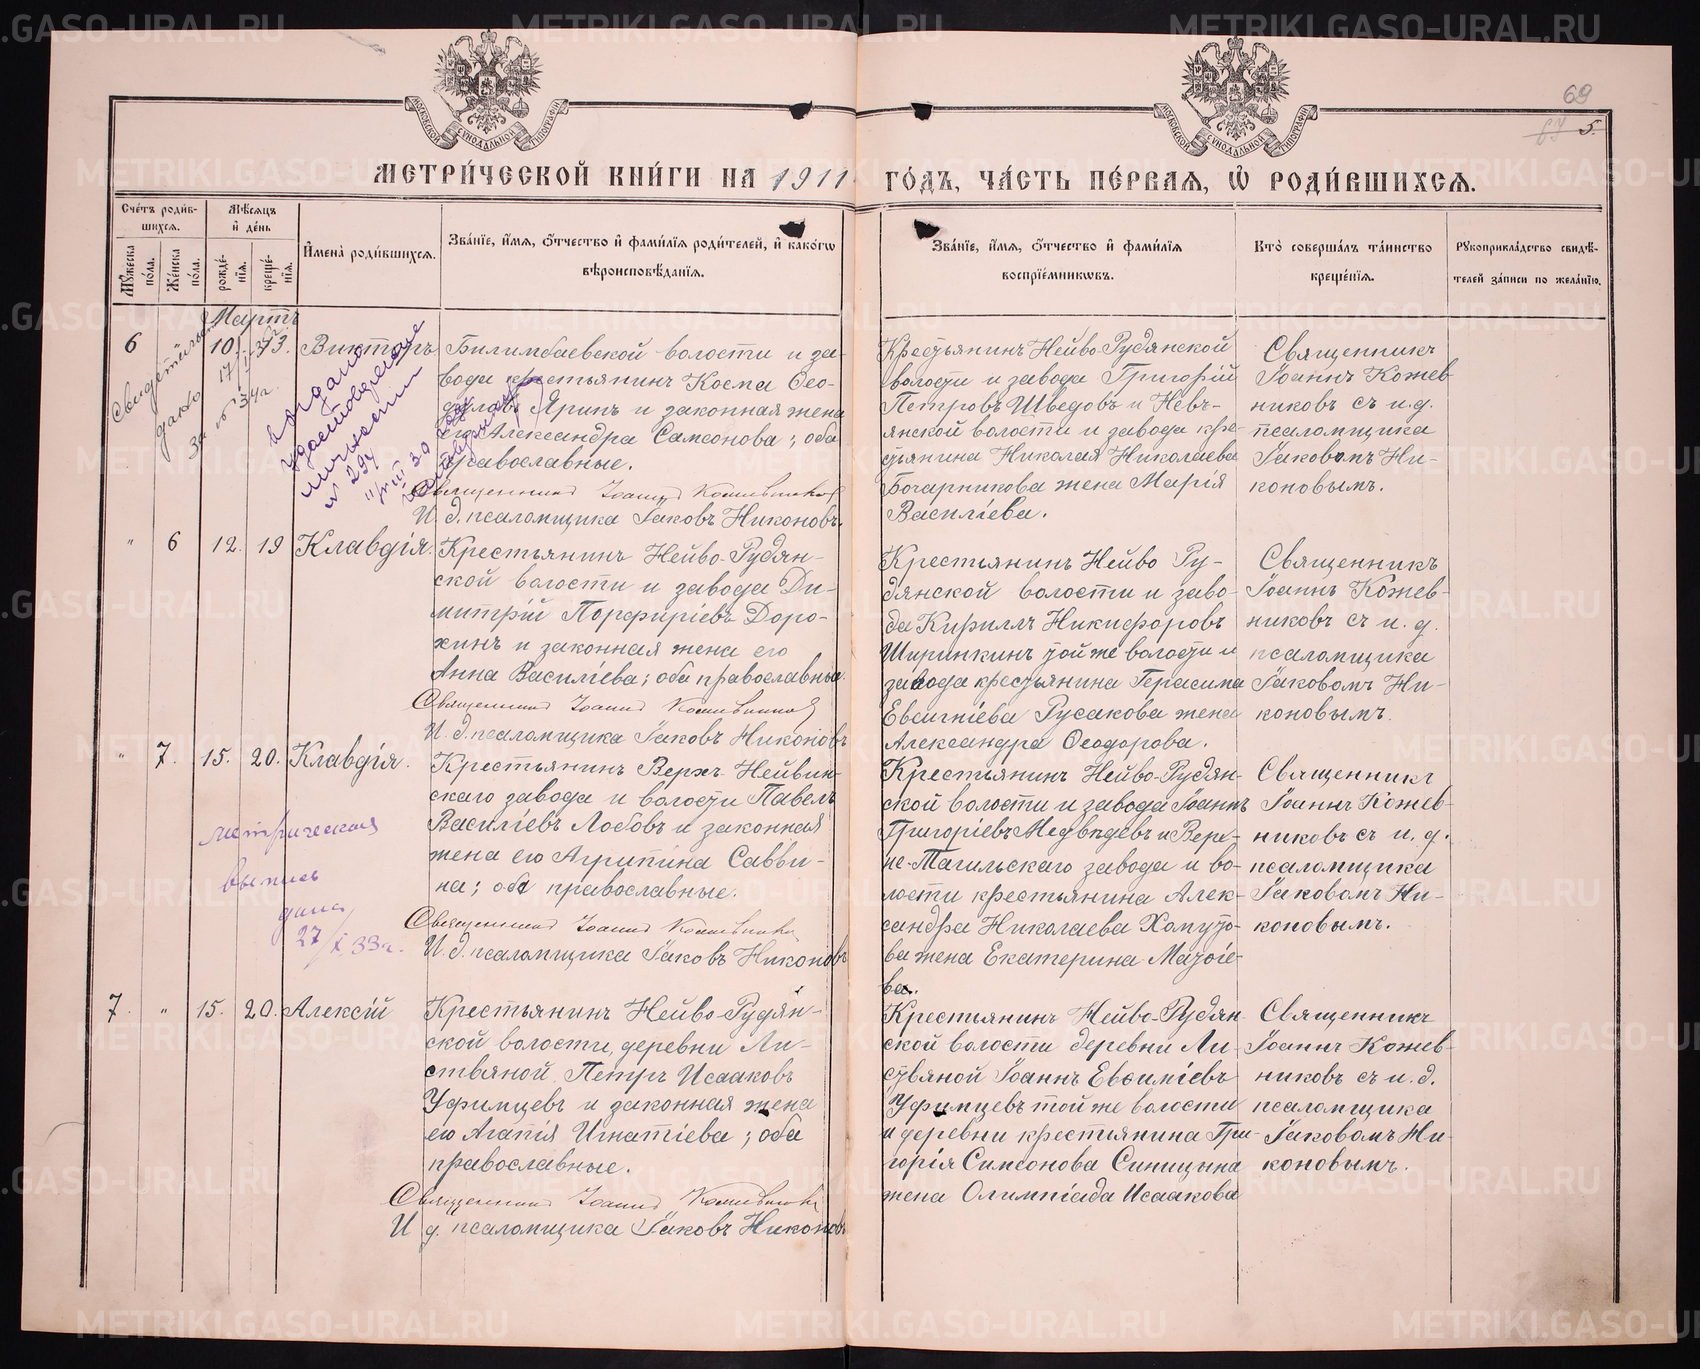 METRIKI.GASO-URAL.RU
69
67 5.
МОСКОВСКОЙ СѴНОДАЛЬНОЙ ТИПОГРАФІИ
МОСКОВСКОЙ СѴНОДАЛЬНОЙ ТИПОГРАФІИ
МЕТРИ́ЧЕСКОЙ КНИ́ГИ НА 1911 ГО́ДЪ, ЧА́СТЬ ПЕ́РВАЯ, Ѡ҆ РОДИ́ВШИХСЯ.
Сче́тъ роди́в-
шихся.
Му́жеска по́ла.
Же́нска по́ла.
Мѣ́сяцъ
и҆ де́нь
рожде́-
нїя.
креще́-
нїя.
И҆мена̀ роди́вшихся.
Зва́нїе, и҆́мя, ѻ҆́тчество и҆ фами́лїя роди́телей, и҆ како́гѡ
вѣроисповѣ́данїя.
Зва́нїе, и҆́мя, ѻ҆́тчество и҆ фами́лїя
воспрїе́мникѡвъ.
Кто̀ соверша́лъ та́инство
креще́нїя.
Рꙋкоприкла́дство свидѣ́-
телей за́писи по жела́нїю.
Мартъ
6
10.
13.
Викторъ
Билимбаевской волости и за-
вода крестьянинъ Косма Ѳео-
дуловъ Яринъ и законная жена
его Александра Самсонова; оба
православные.
Священникъ Іоаннъ Кожевниковъ
И. д. псаломщика Іаковъ Никоновъ.
Крестьянинъ Нейво-Рудянской
волости и завода Григорій
Петровъ Шведовъ и Невь-
янской волости и завода кре-
стьянина Николая Николаева
Бочарникова жена Марія
Васильева.
Священникъ
Іоаннъ Кожев
никовъ съ и.д.
псаломщика
Іаковомъ Ни-
коновымъ.
Свидетельст
дано
34 г
выдано
удостоверение
личности
№ 294
"
6
12.
19
Клавдія.
Крестьянинъ Нейво-Рудян-
ской волости и завода Ди-
митрій Порфиріевъ Доро-
хинъ и законная жена его
Анна Василіева; оба православные.
Священникъ Іоаннъ Кожевниковъ
И. д. псаломщика Іаковъ Никоновъ
Крестьянинъ Нейво Ру-
дянской волости и заво-
да Кириллъ Никифоровъ
Ширинкинъ той же волости и
завода крестьянина Герасима
Евсигніева Русакова жена
Александра Ѳеодорова.
Священникъ
Іоаннъ Кожев-
никовъ съ и. д.
псаломщика
Іаковомъ Ни-
коновымъ.
"
7.
15.
20.
Клавдія.
Крестьянинъ Верхъ-Нейвин-
скаго завода и волости Павелъ
Василіевъ Лобовъ и законная
жена его Агрипина Савви-
на; оба православные.
Священникъ Іоаннъ Кожевниковъ
И. д. псаломщика Іаковъ Никоновъ
Крестьянинъ Нейво-Рудян-
ской волости и завода Іоаннъ
Григоріевъ Медвѣдевъ и Верх-
не-Тагильскаго завода и во-
лости крестьянина Алек-
сандра Николаева Хомуто-
ва жена Екатерина Матѳіе-
ва.
Священникъ
Іоаннъ Кожев-
никовъ съ и. д.
псаломщика
Іаковомъ Ни-
коновымъ.
метрическая
выпись
дана
27/X 33г.
7.
"
15.
20.
Алексій
Крестьянинъ Нейво-Рудян-
ской волости, деревни Ли-
ствяной Петръ Исааковъ
Уфимцевъ и законная жена
его Агапія Игнатіева; оба
православные.
Священникъ Іоаннъ Кожевниковъ
И д. псаломщика Іаковъ Никоновъ
Крестьянинъ Нейво-Рудян
ской волости деревни Ли-
ствяной Іоаннъ Евѳиміевъ
Уфимцевъ той же волости
и деревни крестьянина Гри-
горія Симеонова Синицына
жена Олимпіада Исаакова
Священникъ
Іоаннъ Кожев-
никовъ съ и.д.
псаломщика
Іаковомъ Ни-
коновымъ.